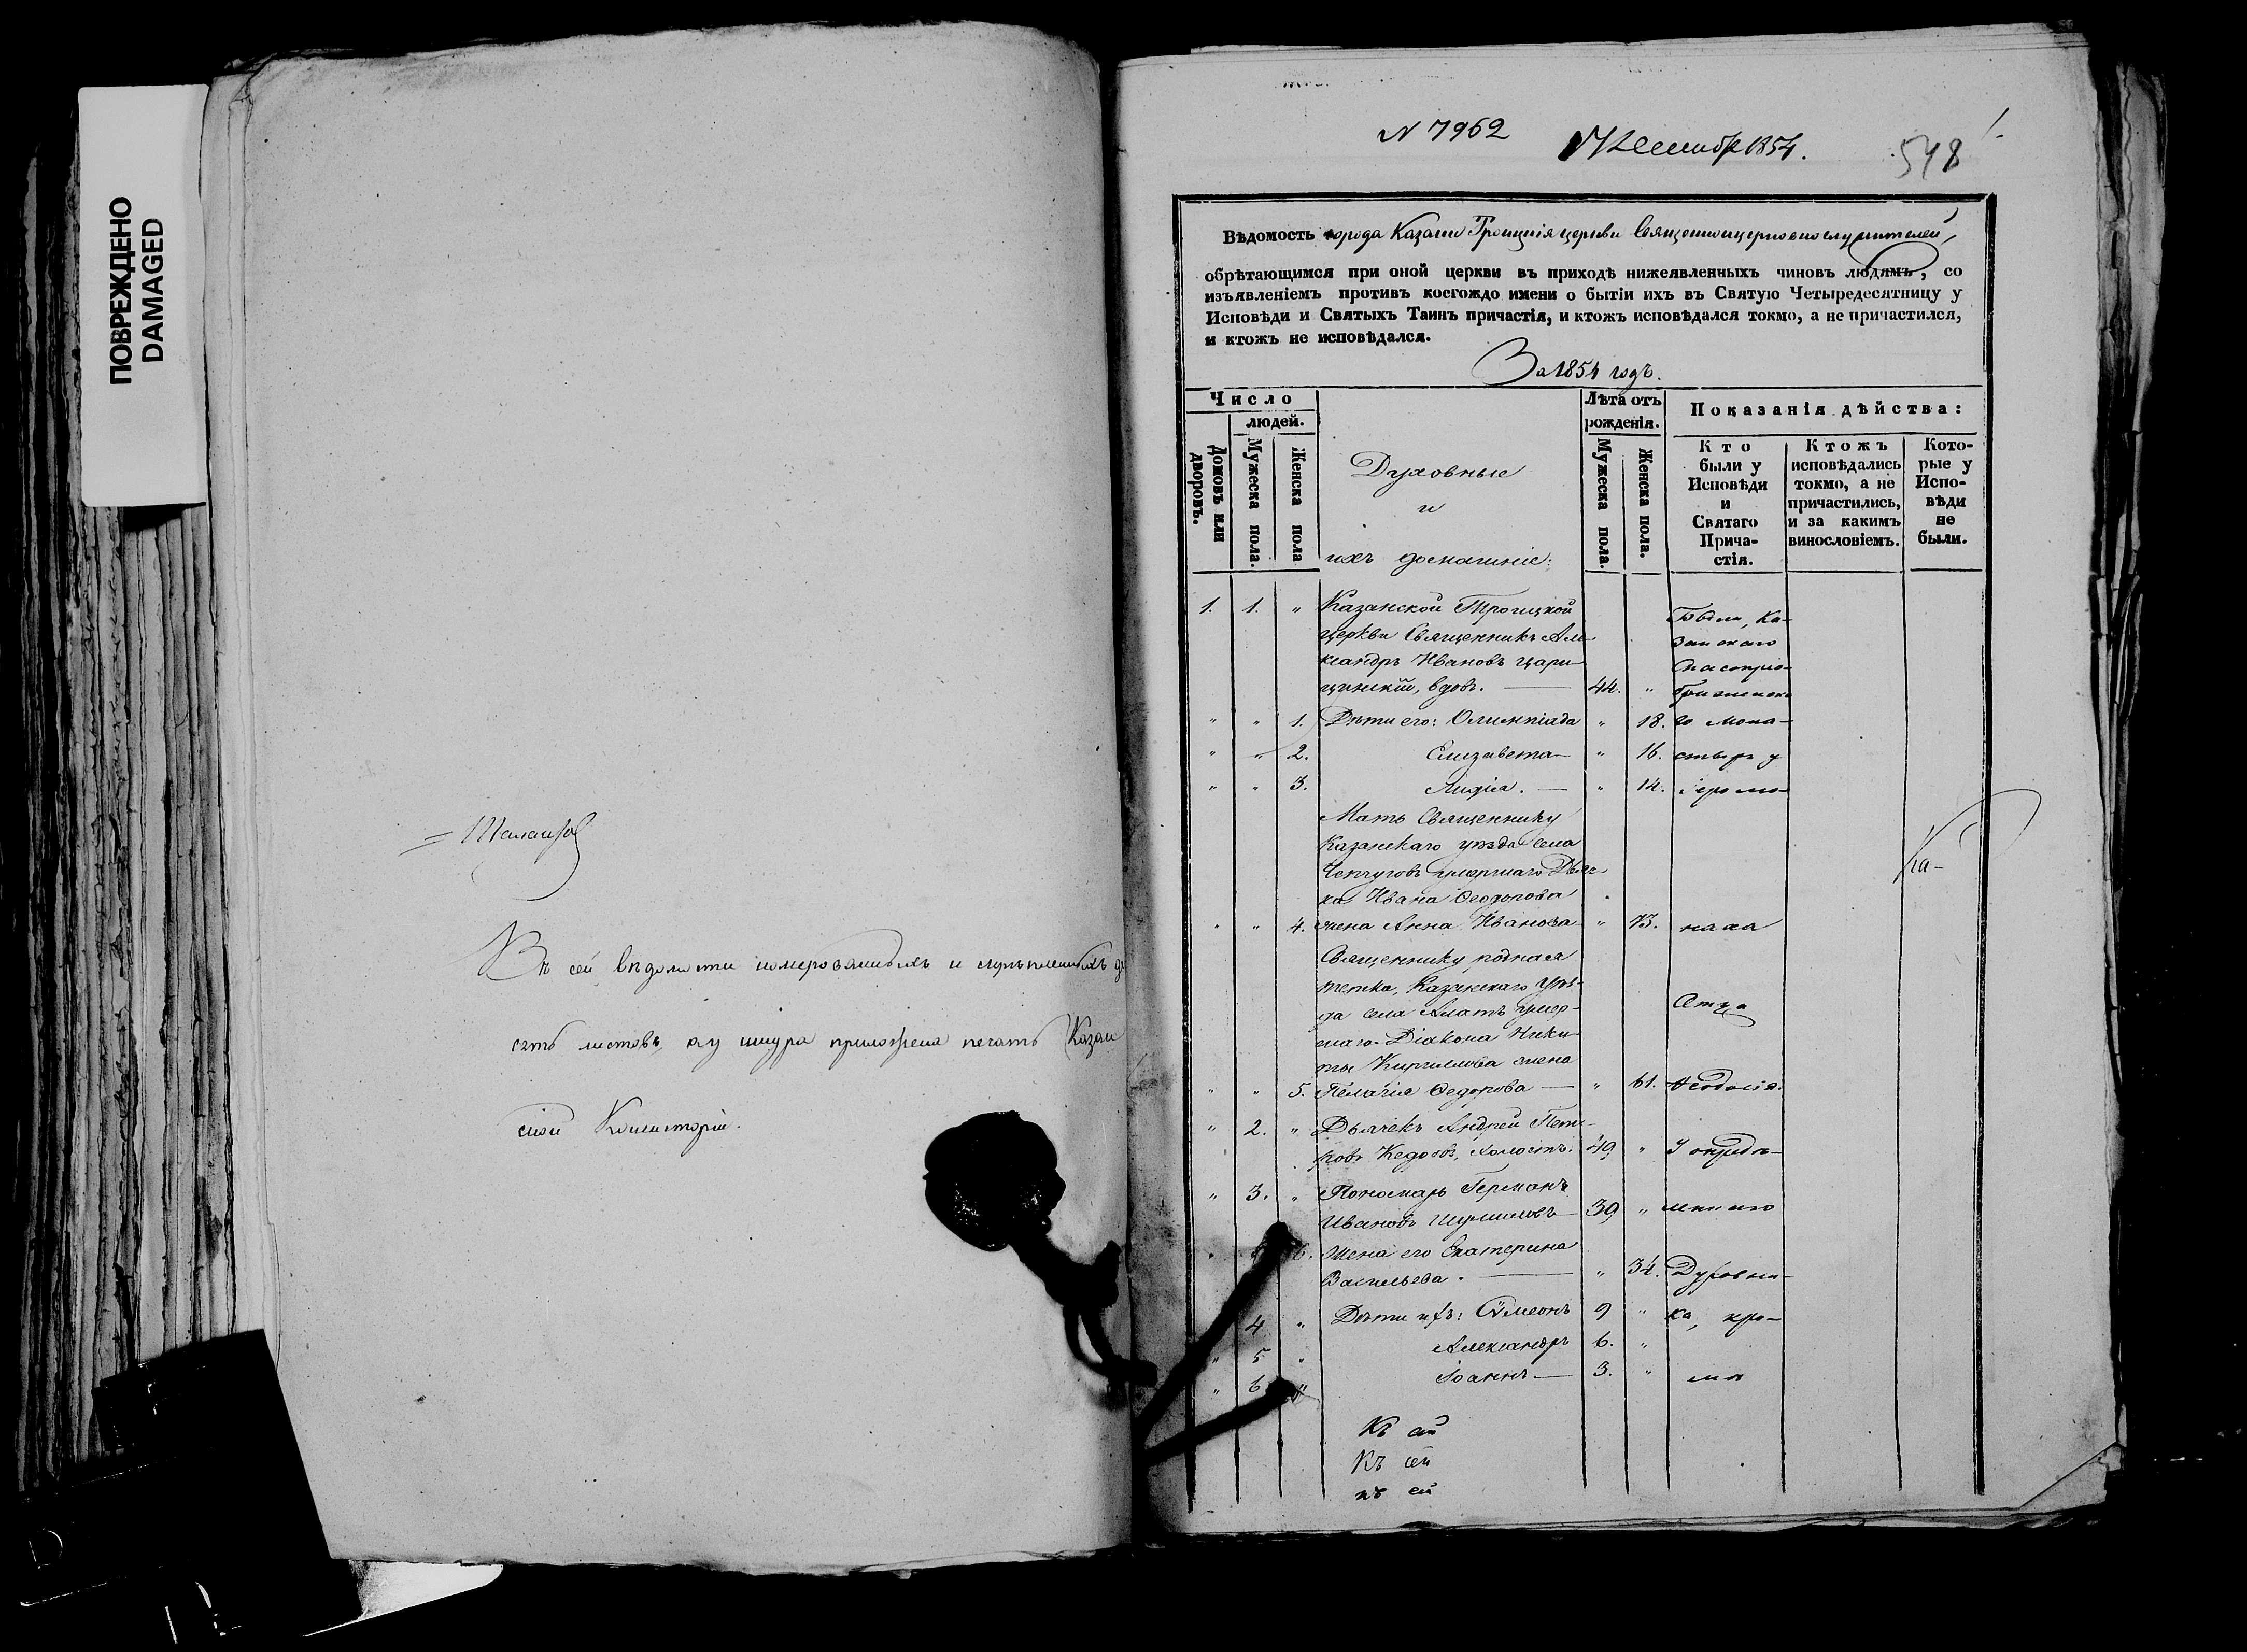 ПОВРЕЖДЕНО
DAMAGED
Въ сей вѣдомости номерованныхъ и скрѣпленныхъ де
сять листовъ, а у шнура приложена печать Казан
ской Консисторіи.
N 7962
1854.
548
Вѣдомость города Казани Троицкія церкви Священноцерковнослужителей,
обрѣтающимся при оной церкви въ приходѣ нижеявленныхъ чиновъ людямъ, со
изъявленіемъ противъ коегождо имени о бытіи ихъ въ Святую Четыредесятницу у
Исповѣди и Святыхъ Таинъ причастія, и ктожъ исповѣдался токмо, а не причастился,
и ктожъ не исповѣдался.
За 1854 годъ.
Число
людей.
Домовъ или дворовъ.
Мужеска пола.
Женска пола
Духовные
и
ихъ домашніе:
Лѣта отъ
рожденія.
Мужеска пола.
Женска пола.
Показанія дѣйства:
Кто
были у
Исповѣди
и
Святаго
Прича-
стія.
Ктожъ
исповѣдались
токмо, а не
причастились,
и за какимъ
винословіемъ.
Кото-
рые у
Испо-
вѣди
не
были.
1. 1. " Казанской Троицкой Были, Ка-
церкви Священникъ Але- занскаго
ксандръ Ивановъ Цари- Спасопрео-
цынскій, вдовъ. — 44. " браженска-
" " 1. Дѣти его: Олимпіада " 18. го мона-
" " 2. Елизавета — " 16. стыря у
" " 3. Лидія. — " 14. іеромо-
Мать Священнику
Казанскаго уѣзда села
Чепчуговъ умершаго Дьяч-
ка Ивана Ѳеодорова
" " 4. жена Анна Иванова " 73. наха
Ка-
Священнику родная
тетка, Казанскаго уѣз-
да села Алатъ умер- Отца
шаго Діакона Ники-
ты Кириллова жена
" " 5. Пелагія Ѳедорова — " 61. Ѳеодосія.
" 2. " Дьячекъ Андрей Пет-
ровъ Кедровъ, холостъ. 49 " У опредѣ-
" 3. " Пономарь Германъ
Ивановъ 39 " леннаго
" " 6. Жена его Екатерина
Васильева. — " 34. Духовни-
4 " Дѣти ихъ: Симеонъ 9 " ка, кро-
" 5 " Александръ 6. "
" 6 " Іоаннъ — 3. " мѣ
Къ сей
Къ сей
къ сей